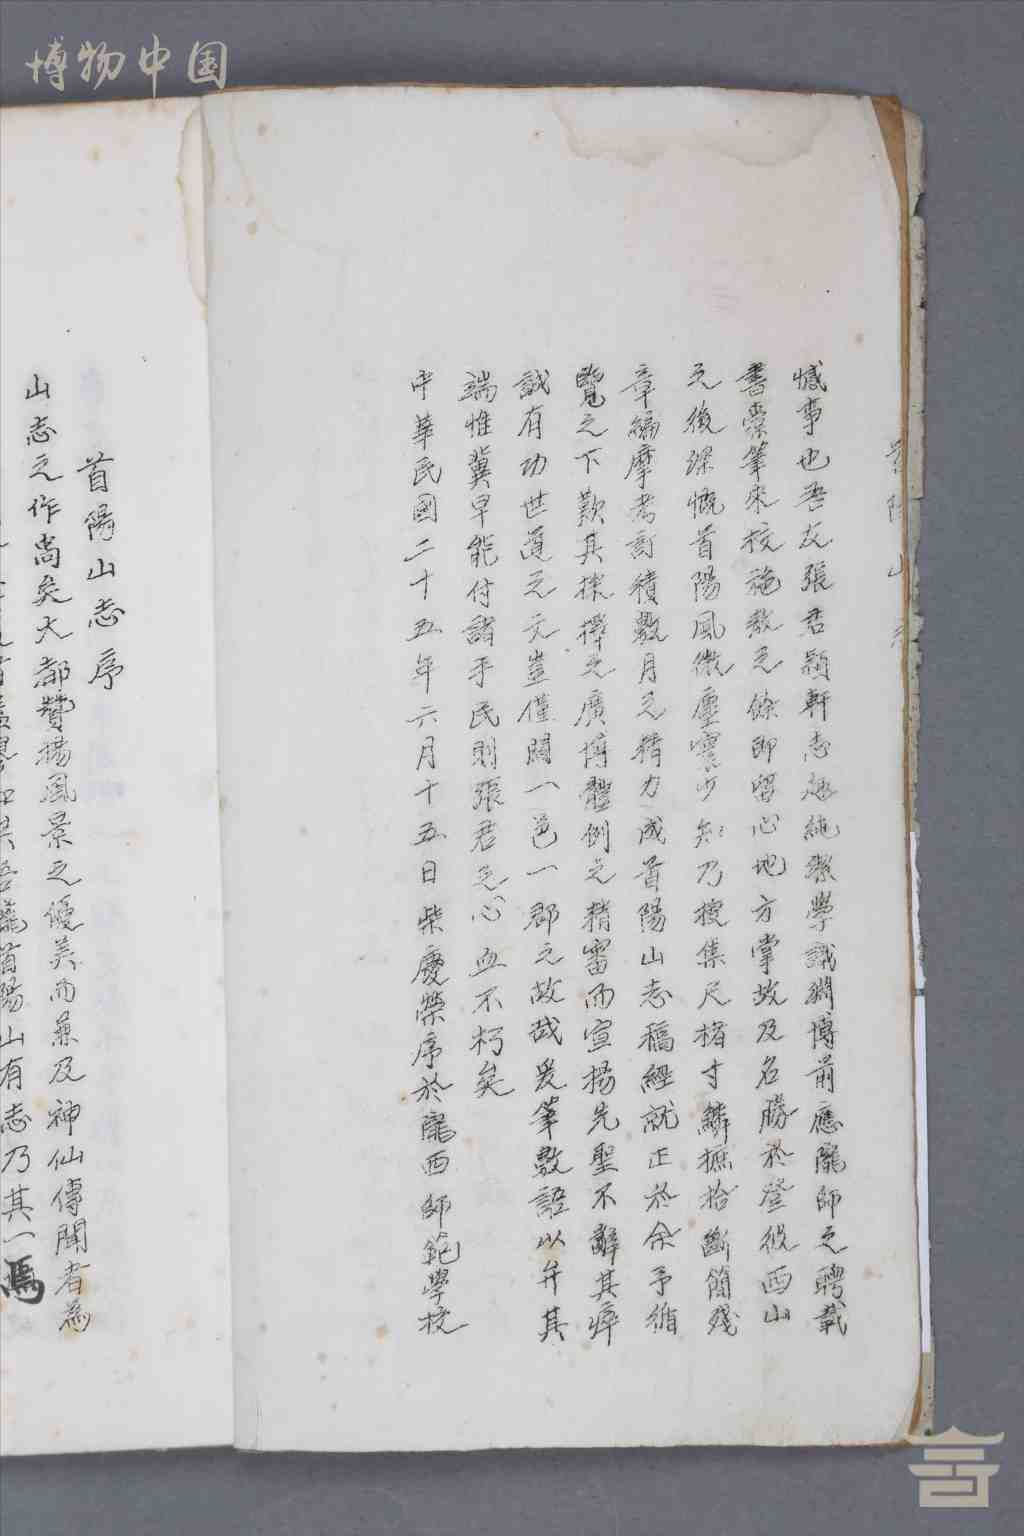 博物中国
首陽山志
憾事也吾友張君穎軒志趣純潔學識淵博前應隴師之聘載
書橐筆來校施教之餘即留心地方掌故及名勝於登彼西山
之後深慨首陽風微塵寰少知乃搜集尺楮寸鱗摭拾斷簡殘
章編摩考訂積數月之精力成首陽山志稿經就正於余予循
覽之下歎其採擇之廣博體例之精審而宣揚先聖不辭其瘁
誠有功世道之文豈僅關一邑一郡之故哉爰筆數語以弁其
端惟冀早能付諸手民則張君之心血不朽矣
中華民國二十五年六月十五日柴慶榮序於隴西師範學校
首陽山志序
山志之作尚矣大都贊揚風景之優美而兼及神仙傳聞者為
吾隴首陽山有志乃其一焉